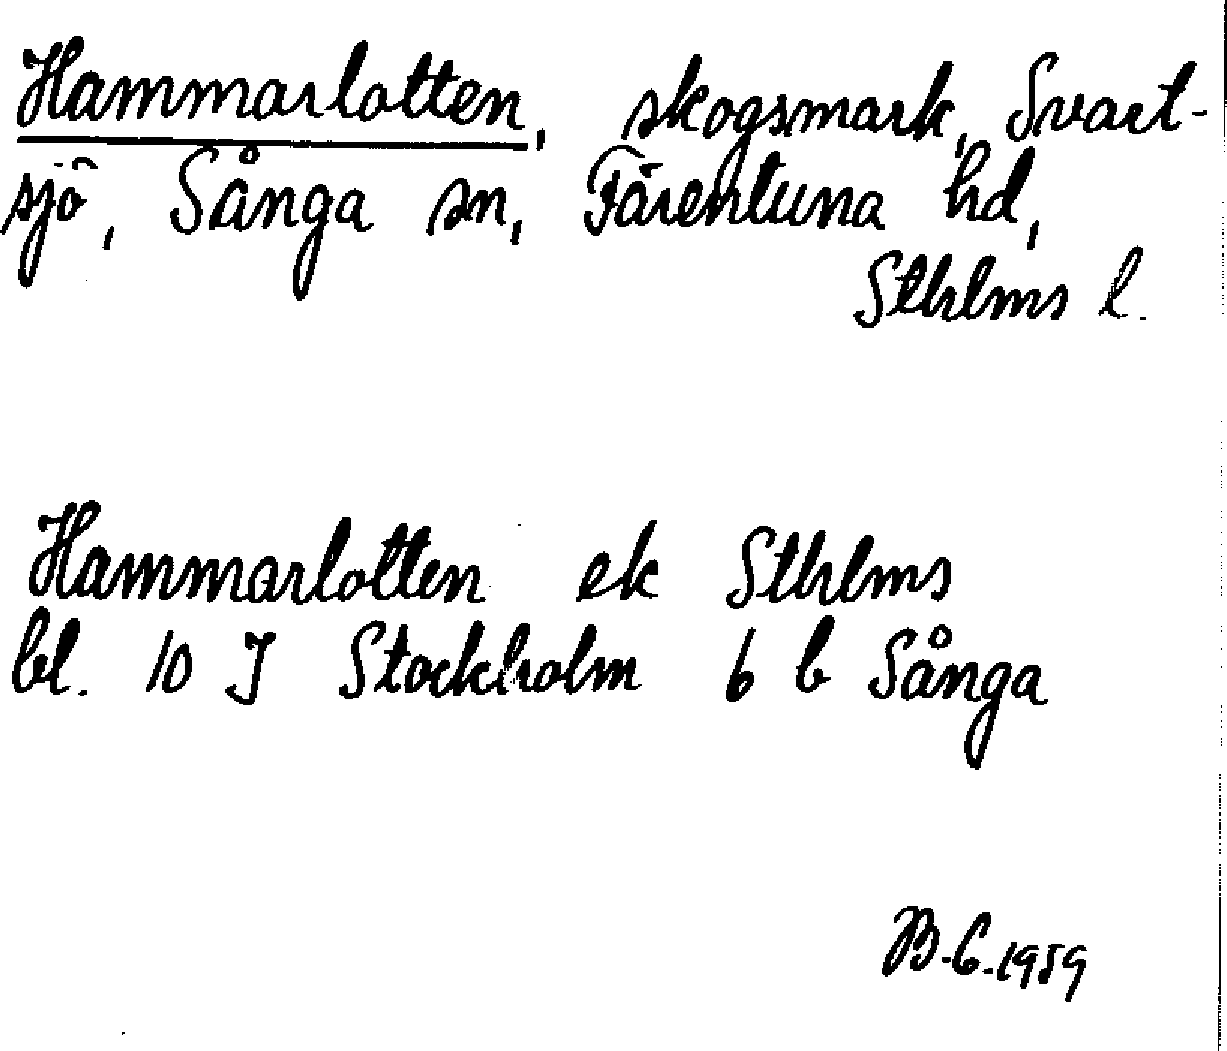 Hammarlotten, skogsmark, Svart-
sjö, Sånga sn, Färentuna hd,
Sthlms l.
Hammarlotten ek Sthlms
bl. 10 J Stockholm 6 b Sånga
B.C. 1959